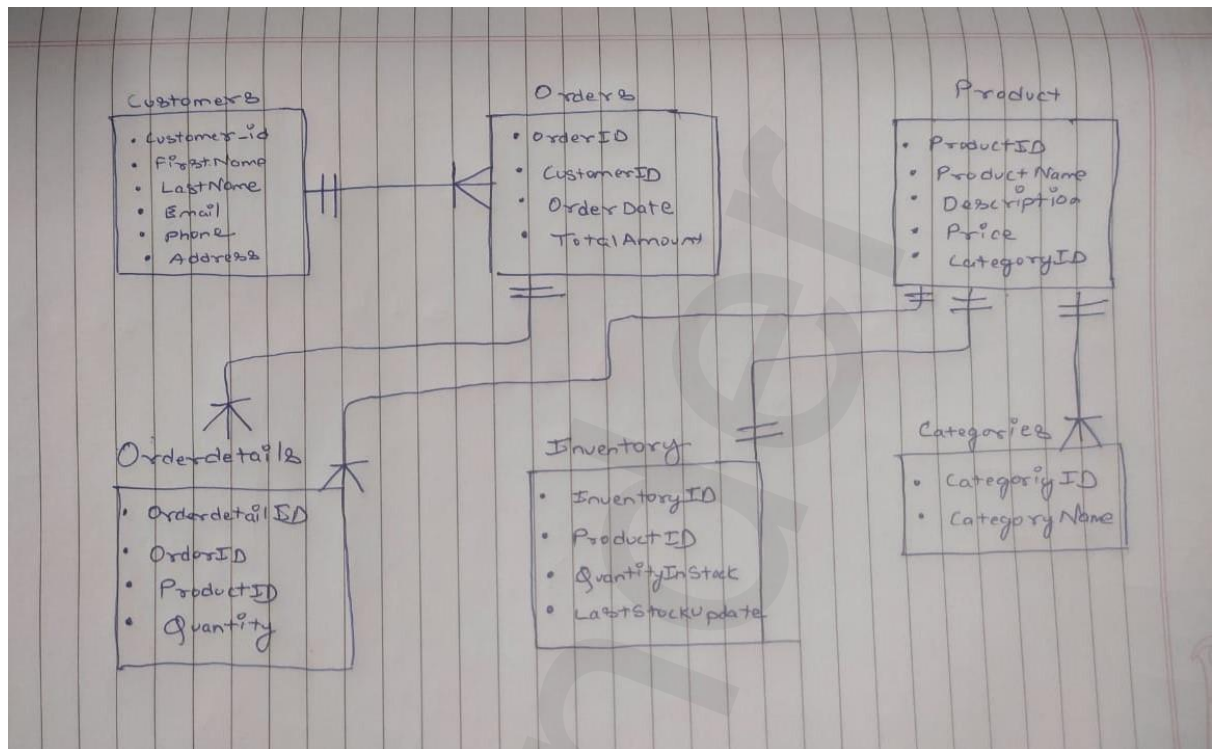 Customers
• Customer_id
• FirstName
• LastName
• Email
• Phone
• Address
Orders
• OrderID
• CustomerID
• OrderDate
• TotalAmount
Product
• ProductID
• ProductName
• Description
• Price
• CategoryID
Orderdetails
• OrderdetailID
• OrderID
• ProductID
• Quantity
Inventory
• InventoryID
• ProductID
• QuantityInStock
• LastStockUpdate
Categories
• CategoriyID
• CategoryName